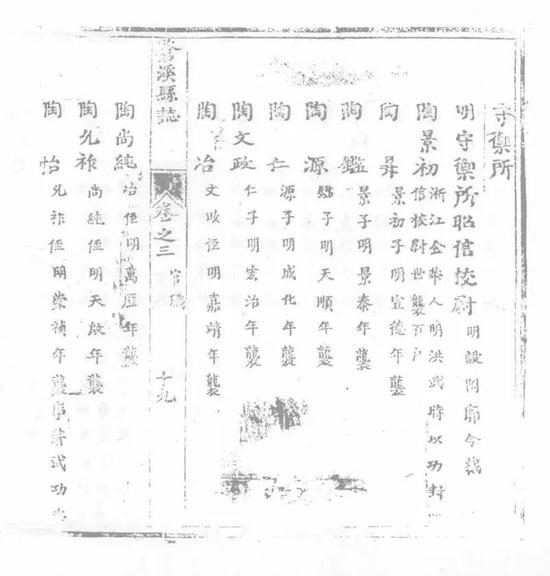 守禦所
明守禦所昭信校尉 明設 今裁
陶景初 浙江金華人明洪武時以功封
信校尉世襲百户
陶 景初子明宣德年襲
陶鑑 子明景泰年襲
陶源 鑑子明天順年襲
陶仁 源子明成化年襲
陶文政 仁子明宏治年襲
陶冶 文政侄明嘉靖年襲
溪縣誌 卷之三 官職 十九
陶尚純 冶侄明萬歷年襲
陶允祚 尚純侄明天啟年襲
陶怡 允祚侄明崇禎年襲事詳武功